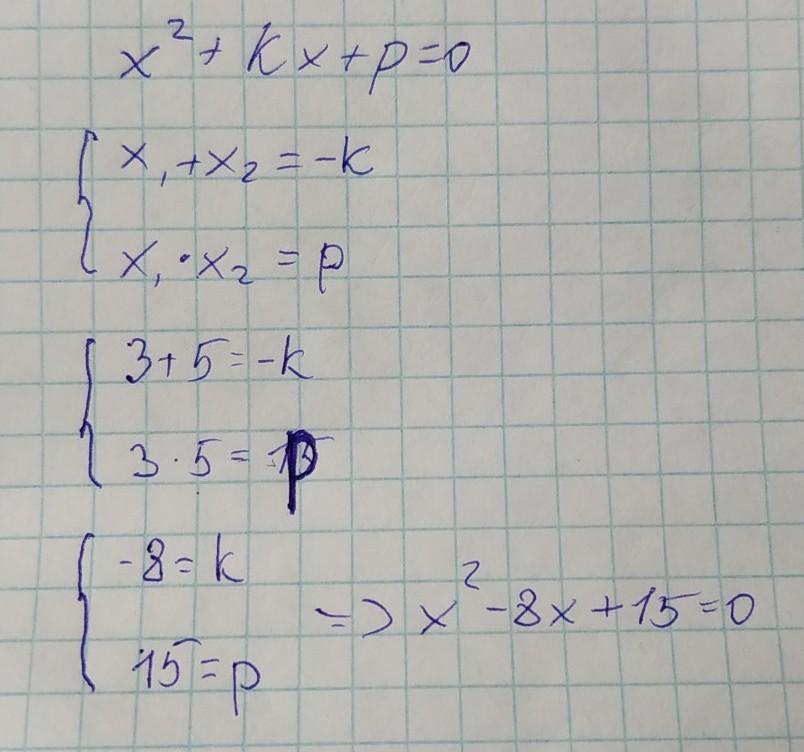 x² + kx + p = 0
x₁ + x₂ = -k
x₁ · x₂ = p
3 + 5 = -k
3 · 5 = p
-8 = k
15 = p
=> x² - 8x + 15 = 0